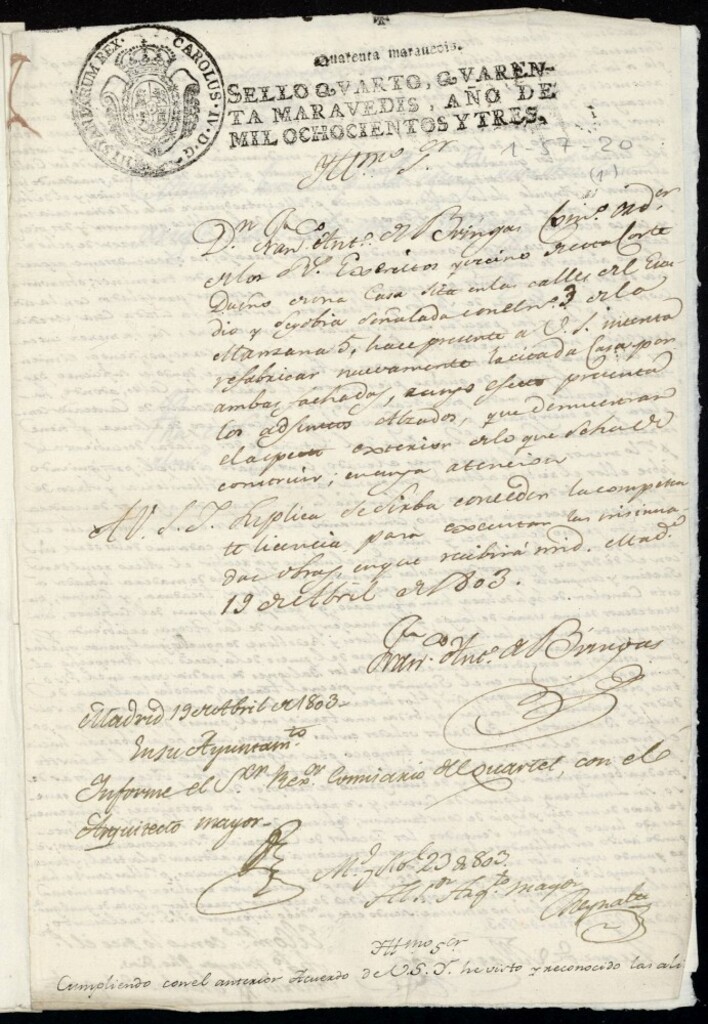 HISPANIARUM REX. CAROLUS · IV · D · G ·
Quarenta maravedis.
SELLO QVARTO, QVAREN-
TA MARAVEDIS, AÑO DE
MIL OCHOCIENTOS Y TRES.
1-57-20
(1)
Yllmo. Sr.
Dn. Franco. Anto. de Bringas Como. Ordor
de los Rs. Exercitos y vecino de esta Corte
Dueño de una Casa sita en las calles del Estu
dio y Segobia señalada con el no. 3 de la
Manzana 5, hace presente a V.S. intenta
refabricar nuevamente la citada Casa por
ambas fachadas, a cuyo efecto presenta
los adjuntos Alzados, que demuestran
el aspecto exterior de lo que se ha de
construir, en cuya atencion
A V. S. I. suplica se sirba conceder la competen
te licencia para executar las insinua
das obras, en que recibirá mrd. Madd.
19 de Abril de 1803.
Franco. Anto. de Bringas
Madrid 19 de Abril de 1803.
En su Ayuntamto.
Informe el Sor. Rexor. Comisario del Quartel, con el
Arquitecto mayor.
Md. y Abl. 23 de 803.
Al Sor. Arqto. mayor
Reynalte
Yllmo Sor
Cumpliendo con el anterior Acuerdo de V. S. I. he visto y reconocido las ali